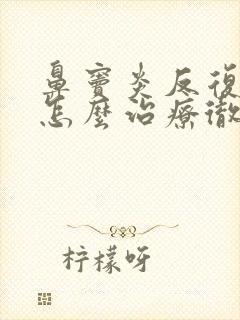 鼻竇炎反復
怎麼治療徹
柠檬呀